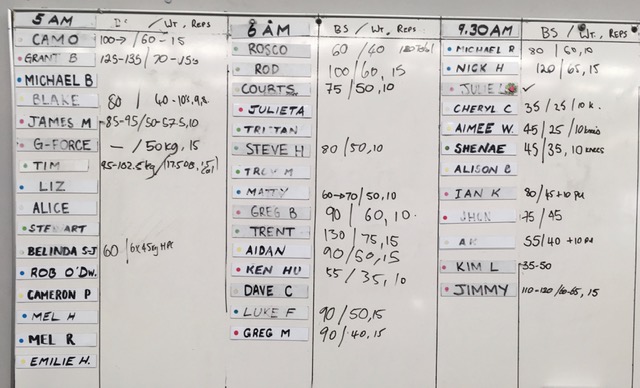 5 AM BS / Wt, Reps
CAMO 100→ /60 - 15
GRANT B 125-135/ 70-15s
MICHAEL B
BLAKE 80 / 40-10's,9,8
JAMES M 85-95/50-57.5,10
G-FORCE — /50kg, 15
TIM 95-102.5kg
LIZ
ALICE
STEWART
BELINDA S-J 60
ROB O'DW.
CAMERON P
MEL H
MEL R
EMILIE H.
6 AM BS / Wt, Reps
ROSCO 60 /40
ROD 100/60, 15
COURTS 75 /50,10
JULIETA
TRISTAN
STEVE H 80 /50,10
TROY M
MATTY 60→70/50, 10
GREG B 90/ 60, 10.
TRENT 130 / 75, 15
AIDAN 90/50,15
KEN HU 55 /35, 10
DAVE C
LUKE F 90/50,15
GREG M 90/40,15
9.30AM BS / Wt, Reps
MICHAEL R 80 / 50,10
NICK H 120 /65,15
JULIE L ✓
CHERYL C 35 / 25 / 10 k.
AIMEE W. 45/25 /10 knees
SHENAE 45/35, 10 KNEES
ALISON B
IAN K 80/45+10 PU
JHON 75/45
AK 55/40 +10 PU
KIM L 35-50
JIMMY 110-120/60-65, 15